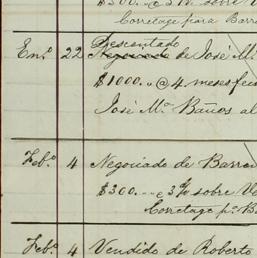 $500.. @ 3% sobre V
Corretage para Barr
Descontado
En.º 22 Negociado de José M.
$1000.. @ 4 meses fec
José M.ª Baños al
Feb.º 4 Negociado de Barre
$300... @ 3% sobre Ve
Corretage p.ª B
Feb.º 4 Vendido de Roberto